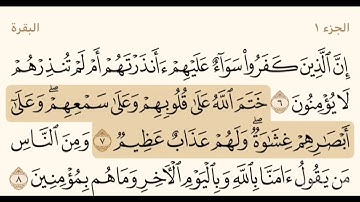 الجزء ١
البقرة
إِنَّ ٱلَّذِينَ كَفَرُوا۟ سَوَآءٌ عَلَيْهِمْ ءَأَنذَرْتَهُمْ أَمْ لَمْ تُنذِرْهُمْ
لَا يُؤْمِنُونَ ٦ خَتَمَ ٱللَّهُ عَلَىٰ قُلُوبِهِمْ وَعَلَىٰ سَمْعِهِمْ ۖ وَعَلَىٰٓ
أَبْصَٰرِهِمْ غِشَٰوَةٌ ۖ وَلَهُمْ عَذَابٌ عَظِيمٌ ٧ وَمِنَ ٱلنَّاسِ
مَن يَقُولُ ءَامَنَّا بِٱللَّهِ وَبِٱلْيَوْمِ ٱلْءَاخِرِ وَمَا هُم بِمُؤْمِنِينَ ٨